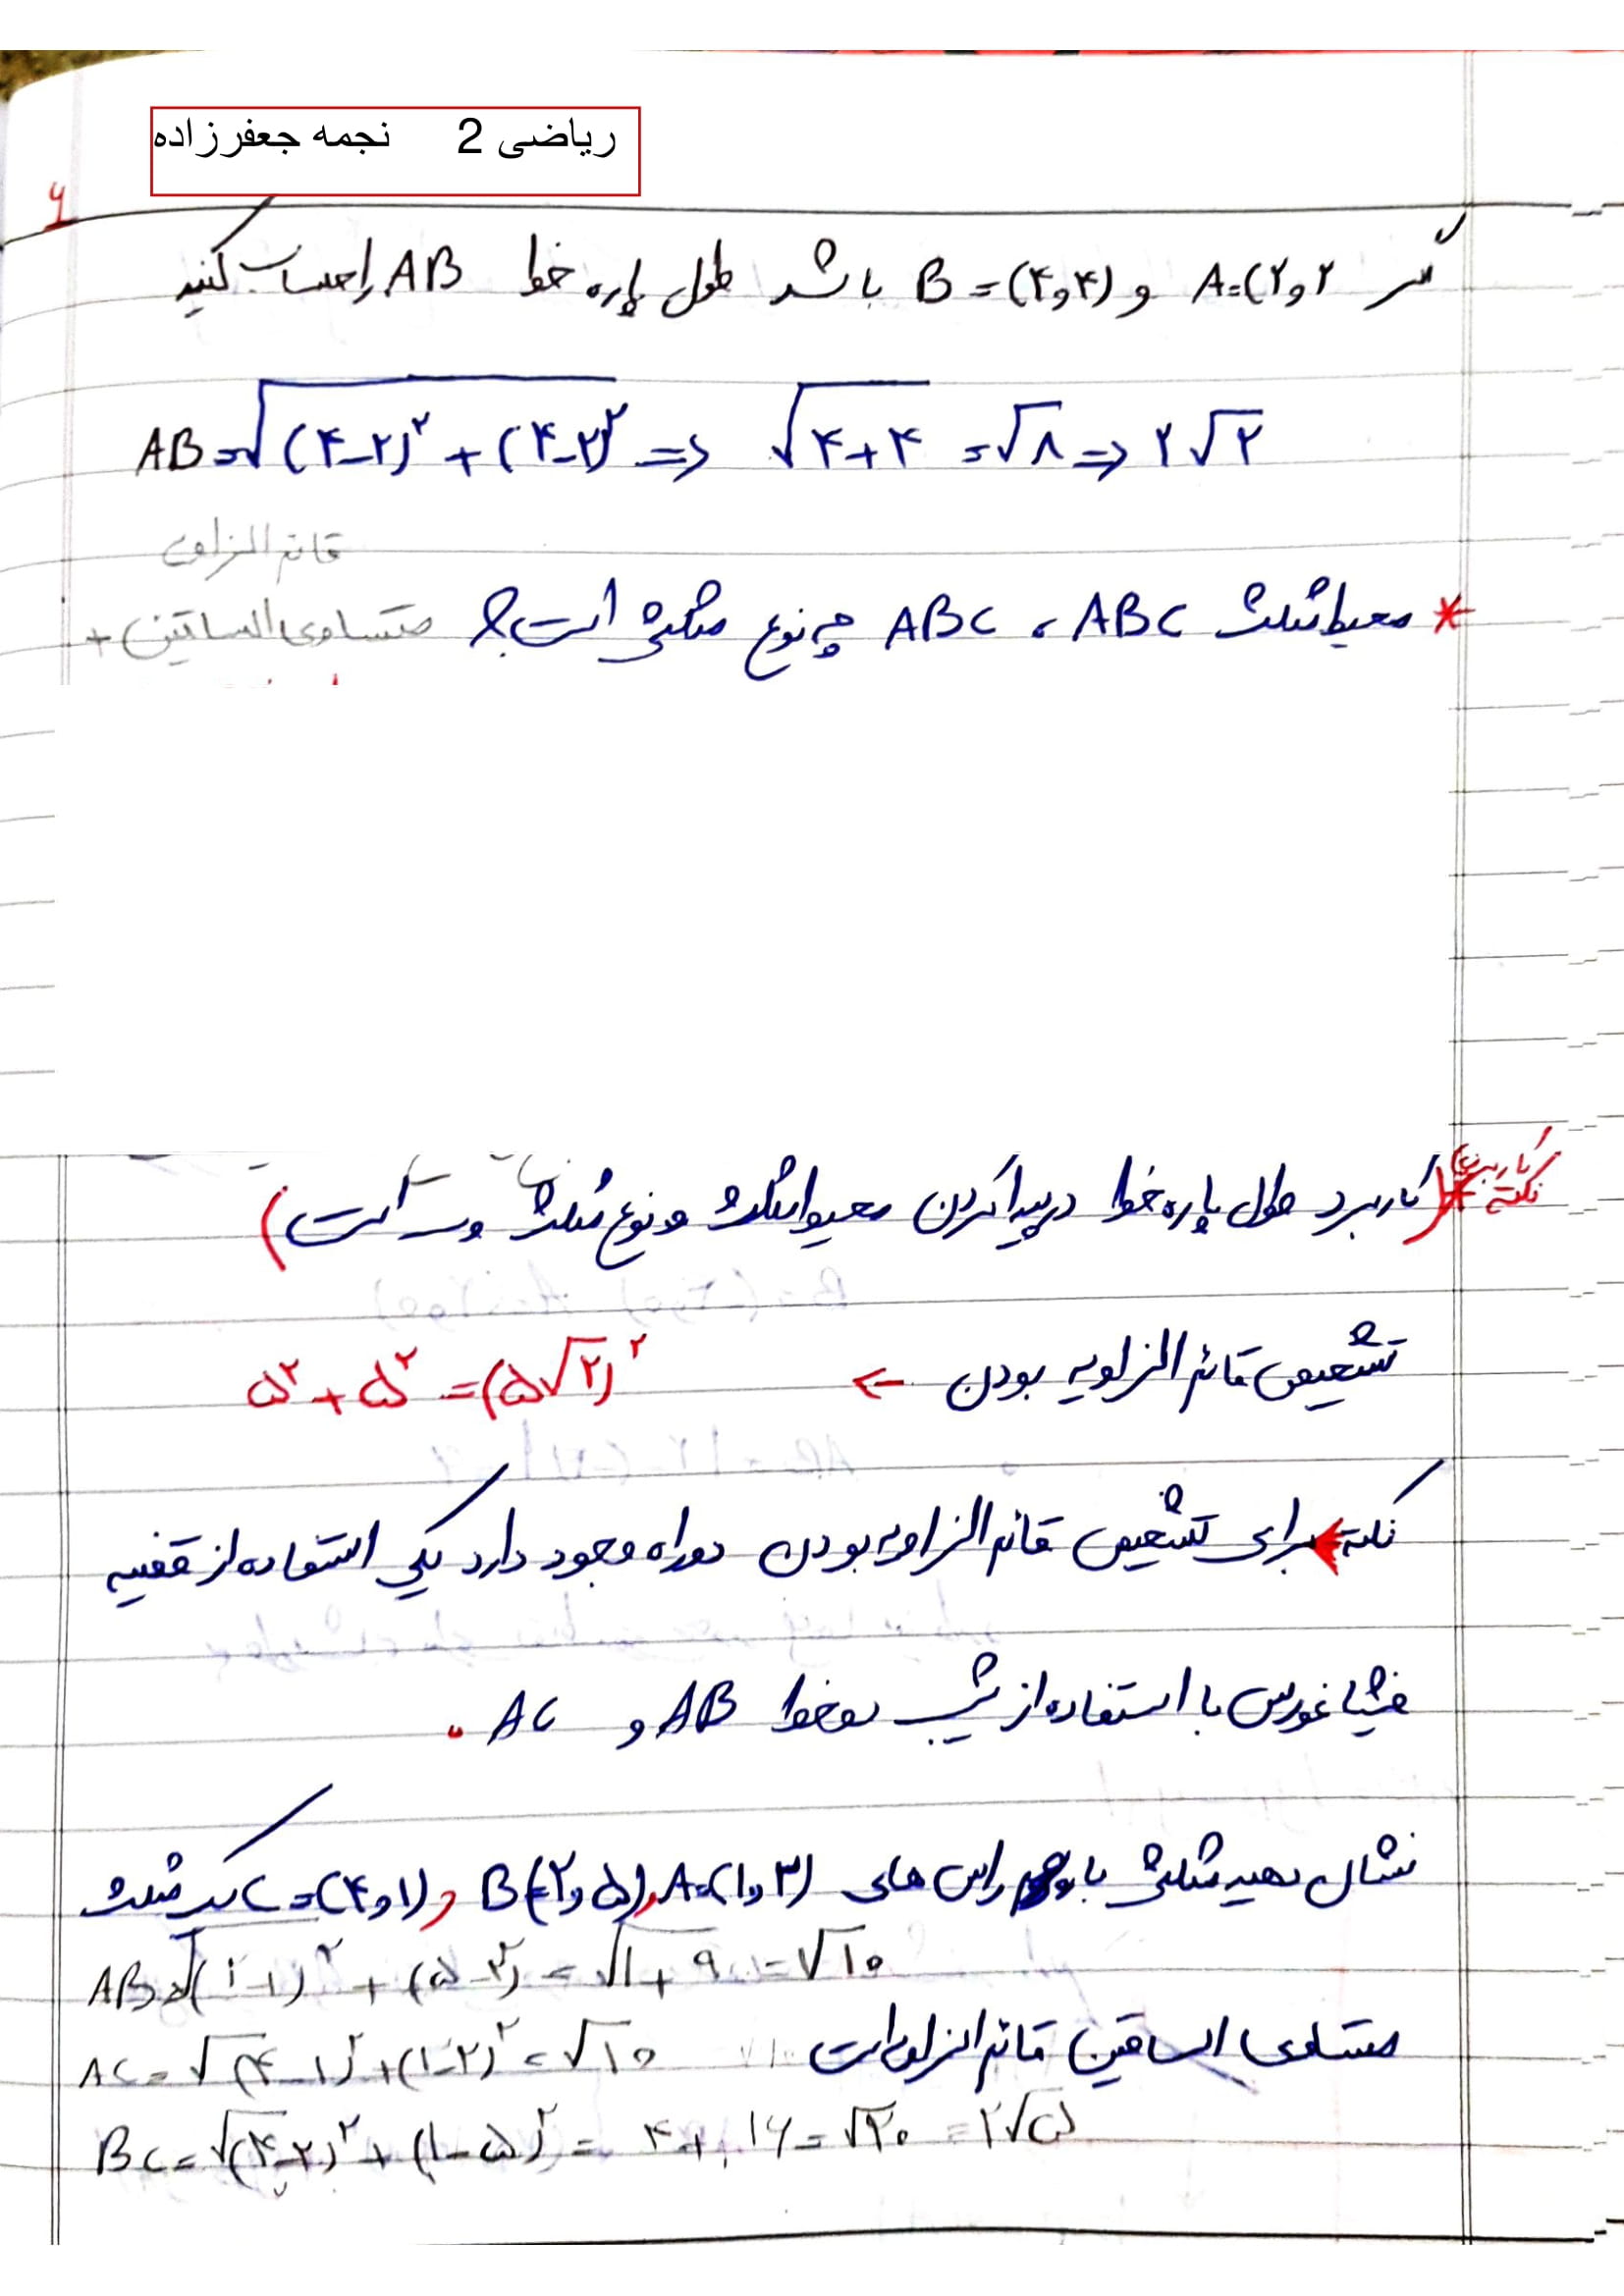 ریاضی 2 نجمه جعفرزاده
۶
اگر A=(۲و۲ و B=(۴و۴) باشد طول پاره خط AB راحساب کنید
AB=√(۴-۲)²+(۴-۲)² => √۴+۴ =√۸ => ۲√۲
قائم الزاویه
* محیط مثلث ABC ، ABC چه نوع مثلثی است؟ متساوی الساقین +
نکته کاربردی (کاربرد طول پاره خط درپیدا کردن محیط مثلث و نوع مثلث و ... است)
تشخیص قائم الزاویه بودن ← ۵²+۵²=(۵√۲)²
نکته برای تشخیص قائم الزاویه بودن دوراه وجود دارد یکی استفاده از قضیه
فیثاغورس با استفاده از شیب دوخط AB و AC .
نشان دهید مثلثی با راس های A=(۱و۳) و B=(۲و۵) و C=(۴و۱) یک مثلث
AB=√(۲-۱)²+(۵-۲)² =√۱+۹ =√۱۰
متساوی الساقین قائم الزاویه است
AC=√(۴-۱)²+(۱-۲)² =√۱۰
BC=√(۴-۲)²+(۱-۵)² = ۴+۱۶=√۲۰ =۲√۵